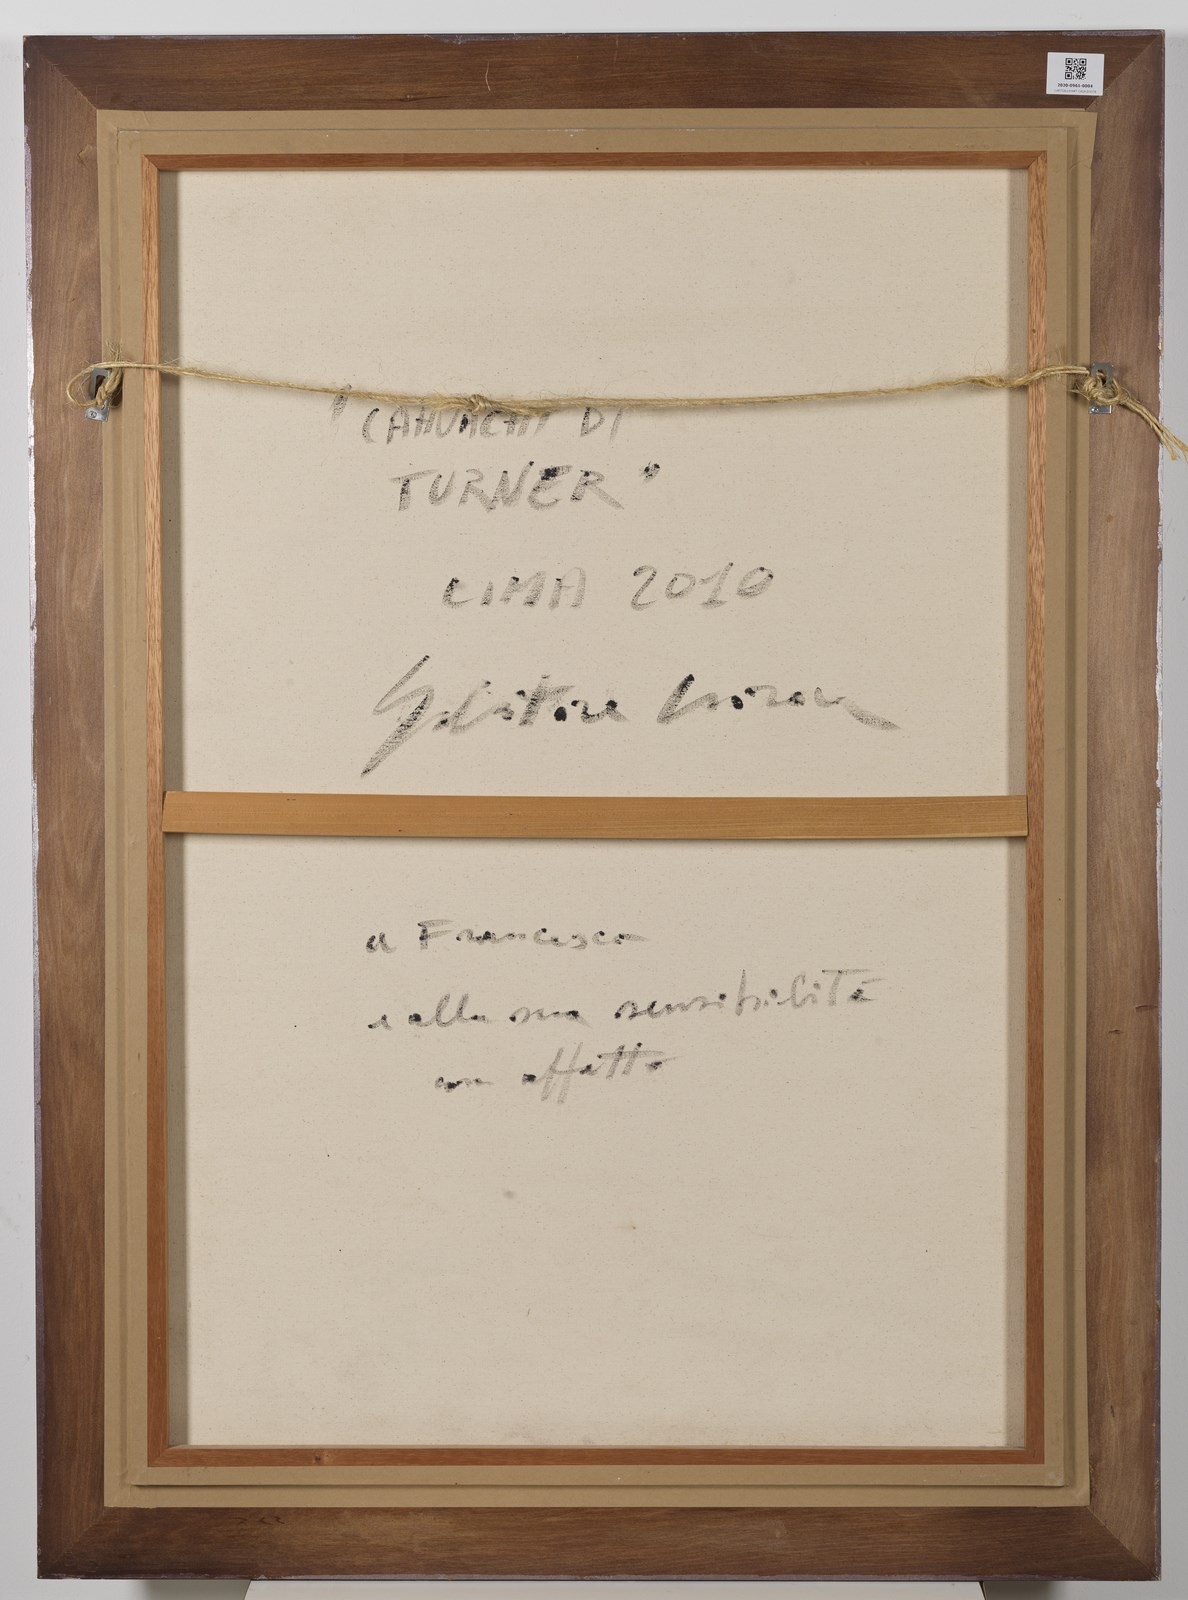 3838-0961-0004
"CAHUACHI DI
TURNER"
LIMA 2010
a Francesco
e alla sua sensibilità
con affetto